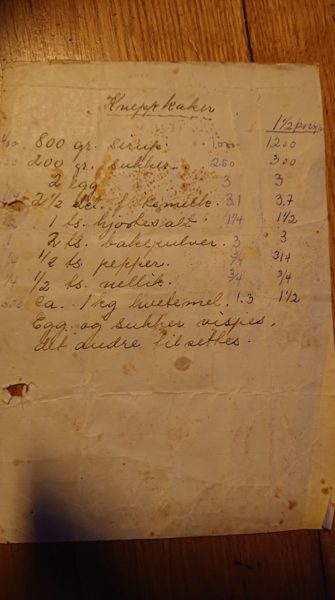 Kneppkaker
1½ pors
800 gr. sirup. 1000 1200
200 gr. sukker 250 300
2 egg 3 3
2½ dl. 3.1 3.7
1 ts. hjortesalt 1¼ 1½
2 ts. bakepulver 3 3
½ ts. pepper. ¾ 3/4
½ ts. nellik. ¾ ¾
ca. 1 kg hvetemel. 1.3 1½
Egg og sukker vispes,
alt andre tilsettes.